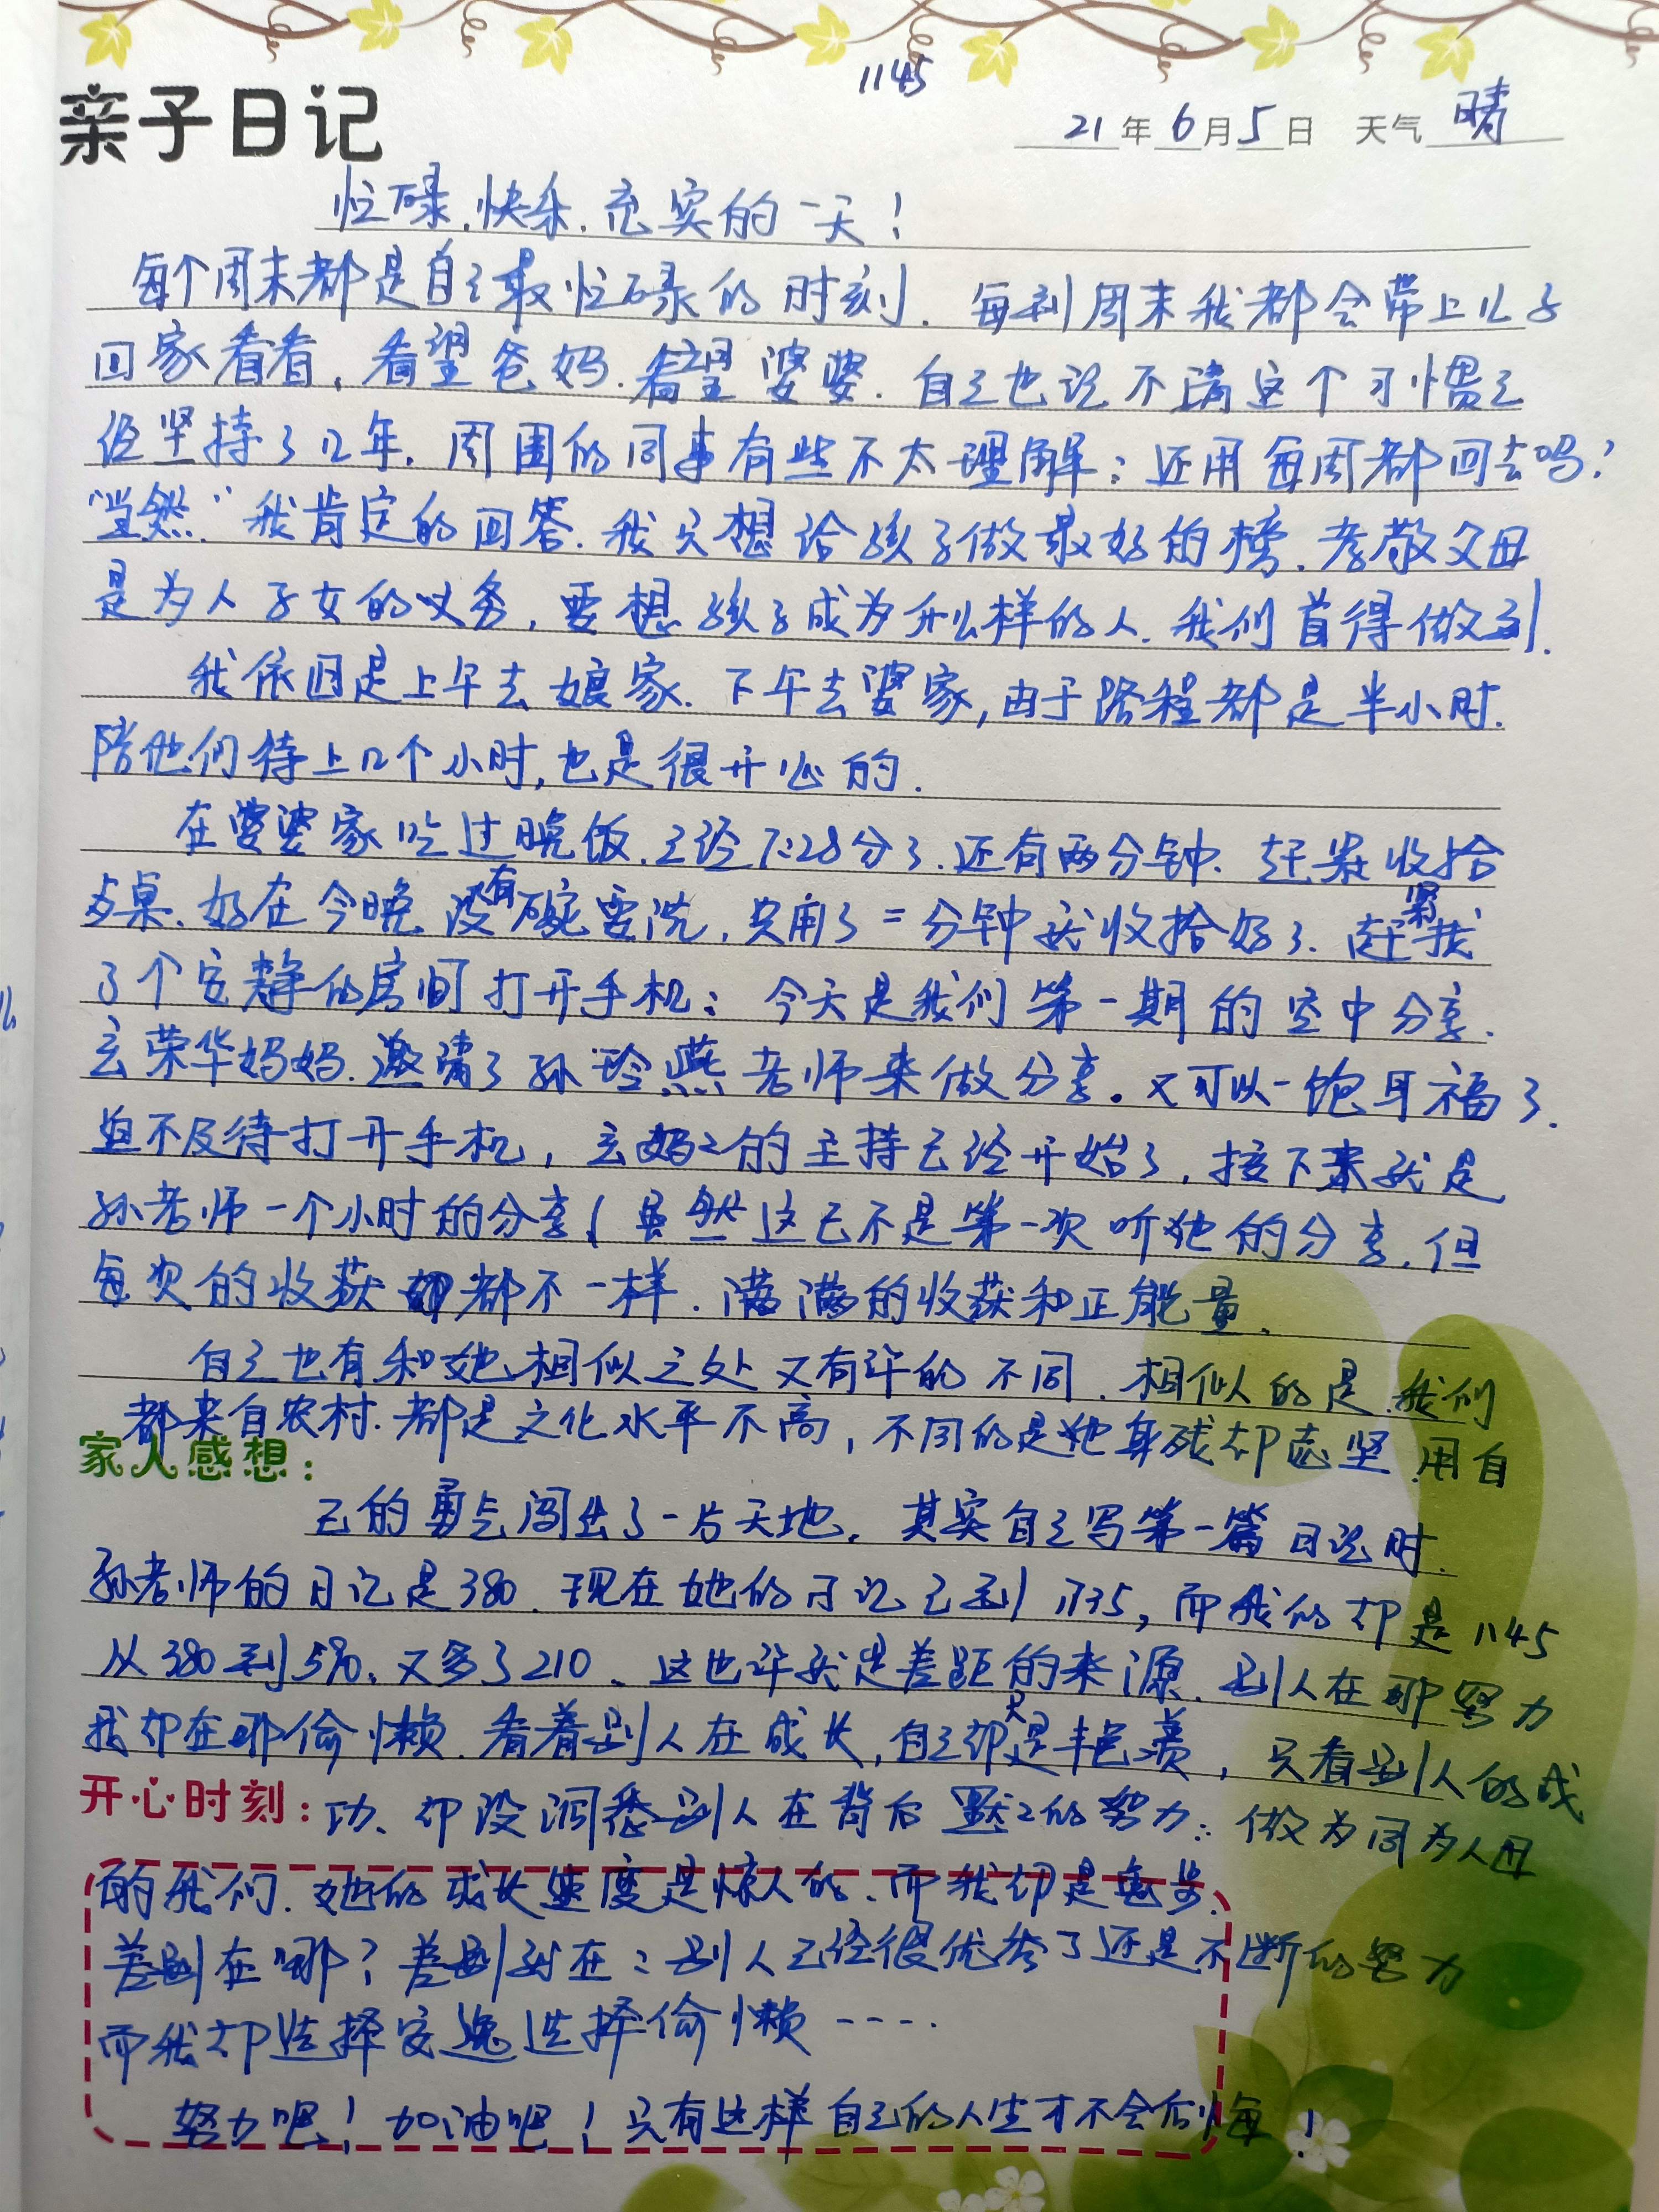 1145
亲子日记
21年6月5日 天气晴
忙碌.快乐.充实的一天!
每个周末都是自己最忙碌的时刻.每到周末我都会带上儿子
回家看看,看望爸妈.看望婆婆.自己也说不清这个习惯已
经坚持了几年.周围的同事有些不太理解:还用每周都回去吗?
"当然"我肯定的回答.我只想给孩子做最好的榜.孝敬父母
是为人子女的义务,要想孩子成为什么样的人.我们首得做到.
我依旧是上午去娘家.下午去婆家,由于路程都是半小时.
陪他们待上几个小时,也是很开心的.
在婆婆家吃过晚饭.已经7:28分了.还有两分钟.赶紧收拾
桌.好在今晚没有碗要洗,只用了二分钟就收拾好了.赶紧找
了个安静的房间打开手机:今天是我们第一期的空中分享.
玄荣华妈妈.邀请了孙玲燕老师来做分享.又可以一饱耳福了.
迫不及待打开手机,玄妈2的主持已经开始了,接下来就是
孙老师一个小时的分享(虽然这已不是第一次听她的分享.但
每次的收获都不一样.满满的收获和正能量.
自己也有和她相似之处又有许的不同.相似的是.我们
都来自农村.都是文化水平不高,不同的是她身残却志坚.用自
家人感想:
己的勇气闯出了一片天地.其实自己写第一篇日记时.
孙老师的日记是380.现在她的日记已到1735,而我的却是1145
从380到590.又多了210、这也许就是差距的来源.别人在那努力
我却在那偷懒.看着别人在成长,自己却只是羡慕,只看别人的成
开心时刻:功、却没洞悉别人在背后默2的努力:做为同为人母
的我们.她的成长速度是惊人的、而我却是龟步.
差别在哪?差别就在:别人已经很优秀了还是不断的努力
而我却选择安逸选择偷懒----
努力吧!加油吧!只有这样自己的人生才不会后悔!